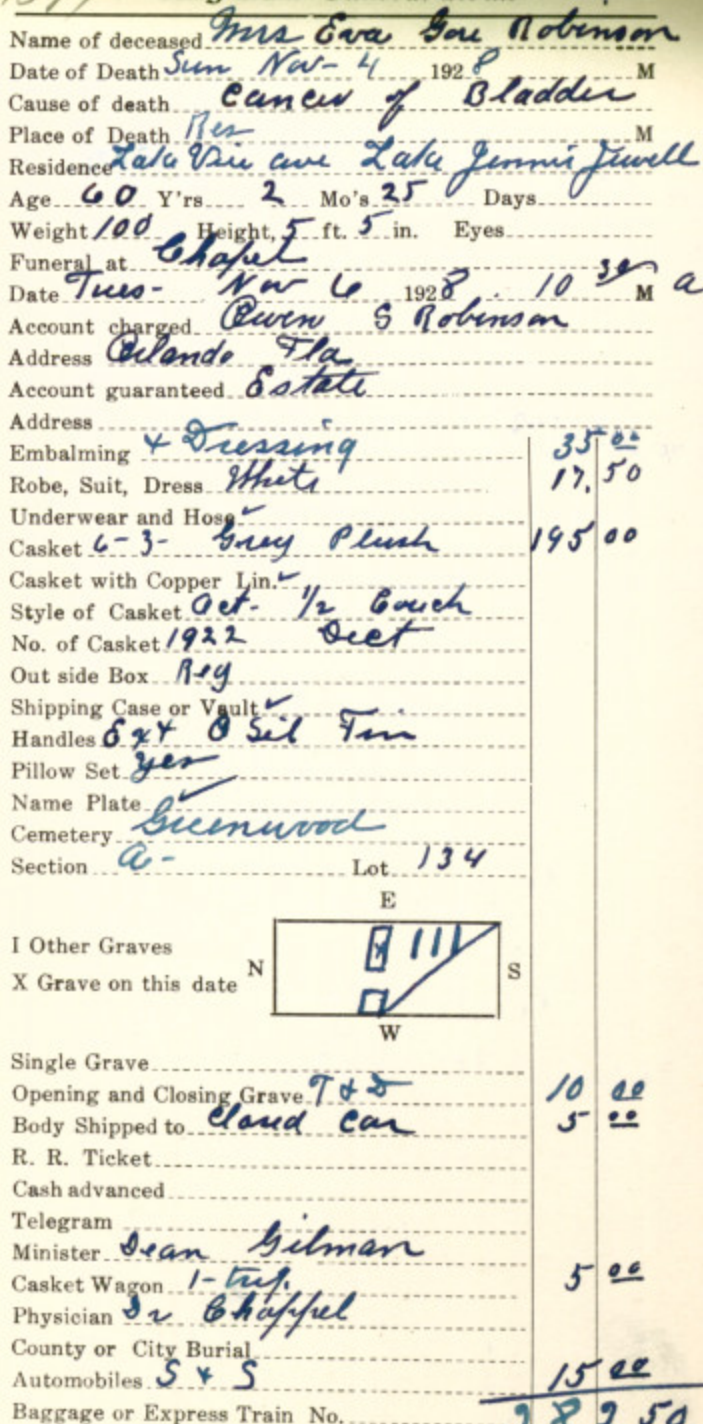 Name of deceased Mrs Eva Gore Robinson
Date of Death Sun Nov- 4 1928 M
Cause of death Cancer of Bladder
Place of Death Res M
Residence Lake Viu ave Lake Jennie Jewell
Age 60 Y'rs 2 Mo's 25 Days
Weight 100 Height, 5 ft. 5 in. Eyes
Funeral at Chapel
Date Tues- Nov 6 1928 . 10 30 M a
Account charged Owen S Robinson
Address Orlando Fla
Account guaranteed Estate
Address
Embalming + Dressing 35 00
Robe, Suit, Dress White 17.50
Underwear and Hose ✓
Casket 6-3- Grey Plush 195 00
Casket with Copper Lin. ✓
Style of Casket Oct- 1/2 Couch
No. of Casket 1922 Dect
Out side Box Reg
Shipping Case or Vault ✓
Handles Ext O Sil Tin
Pillow Set yes
Name Plate ✓
Cemetery Greenwood
Section A- Lot 134
E
I Other Graves
N S
X Grave on this date
X
W
Single Grave
Opening and Closing Grave T & D 10 00
Body Shipped to Closed Car 5 00
R. R. Ticket
Cash advanced
Telegram
Minister Dean Gilman
Casket Wagon 1-trip. 5 00
Physician Dr Chappel
County or City Burial
Automobiles S & S 15 00
Baggage or Express Train No. 282 50